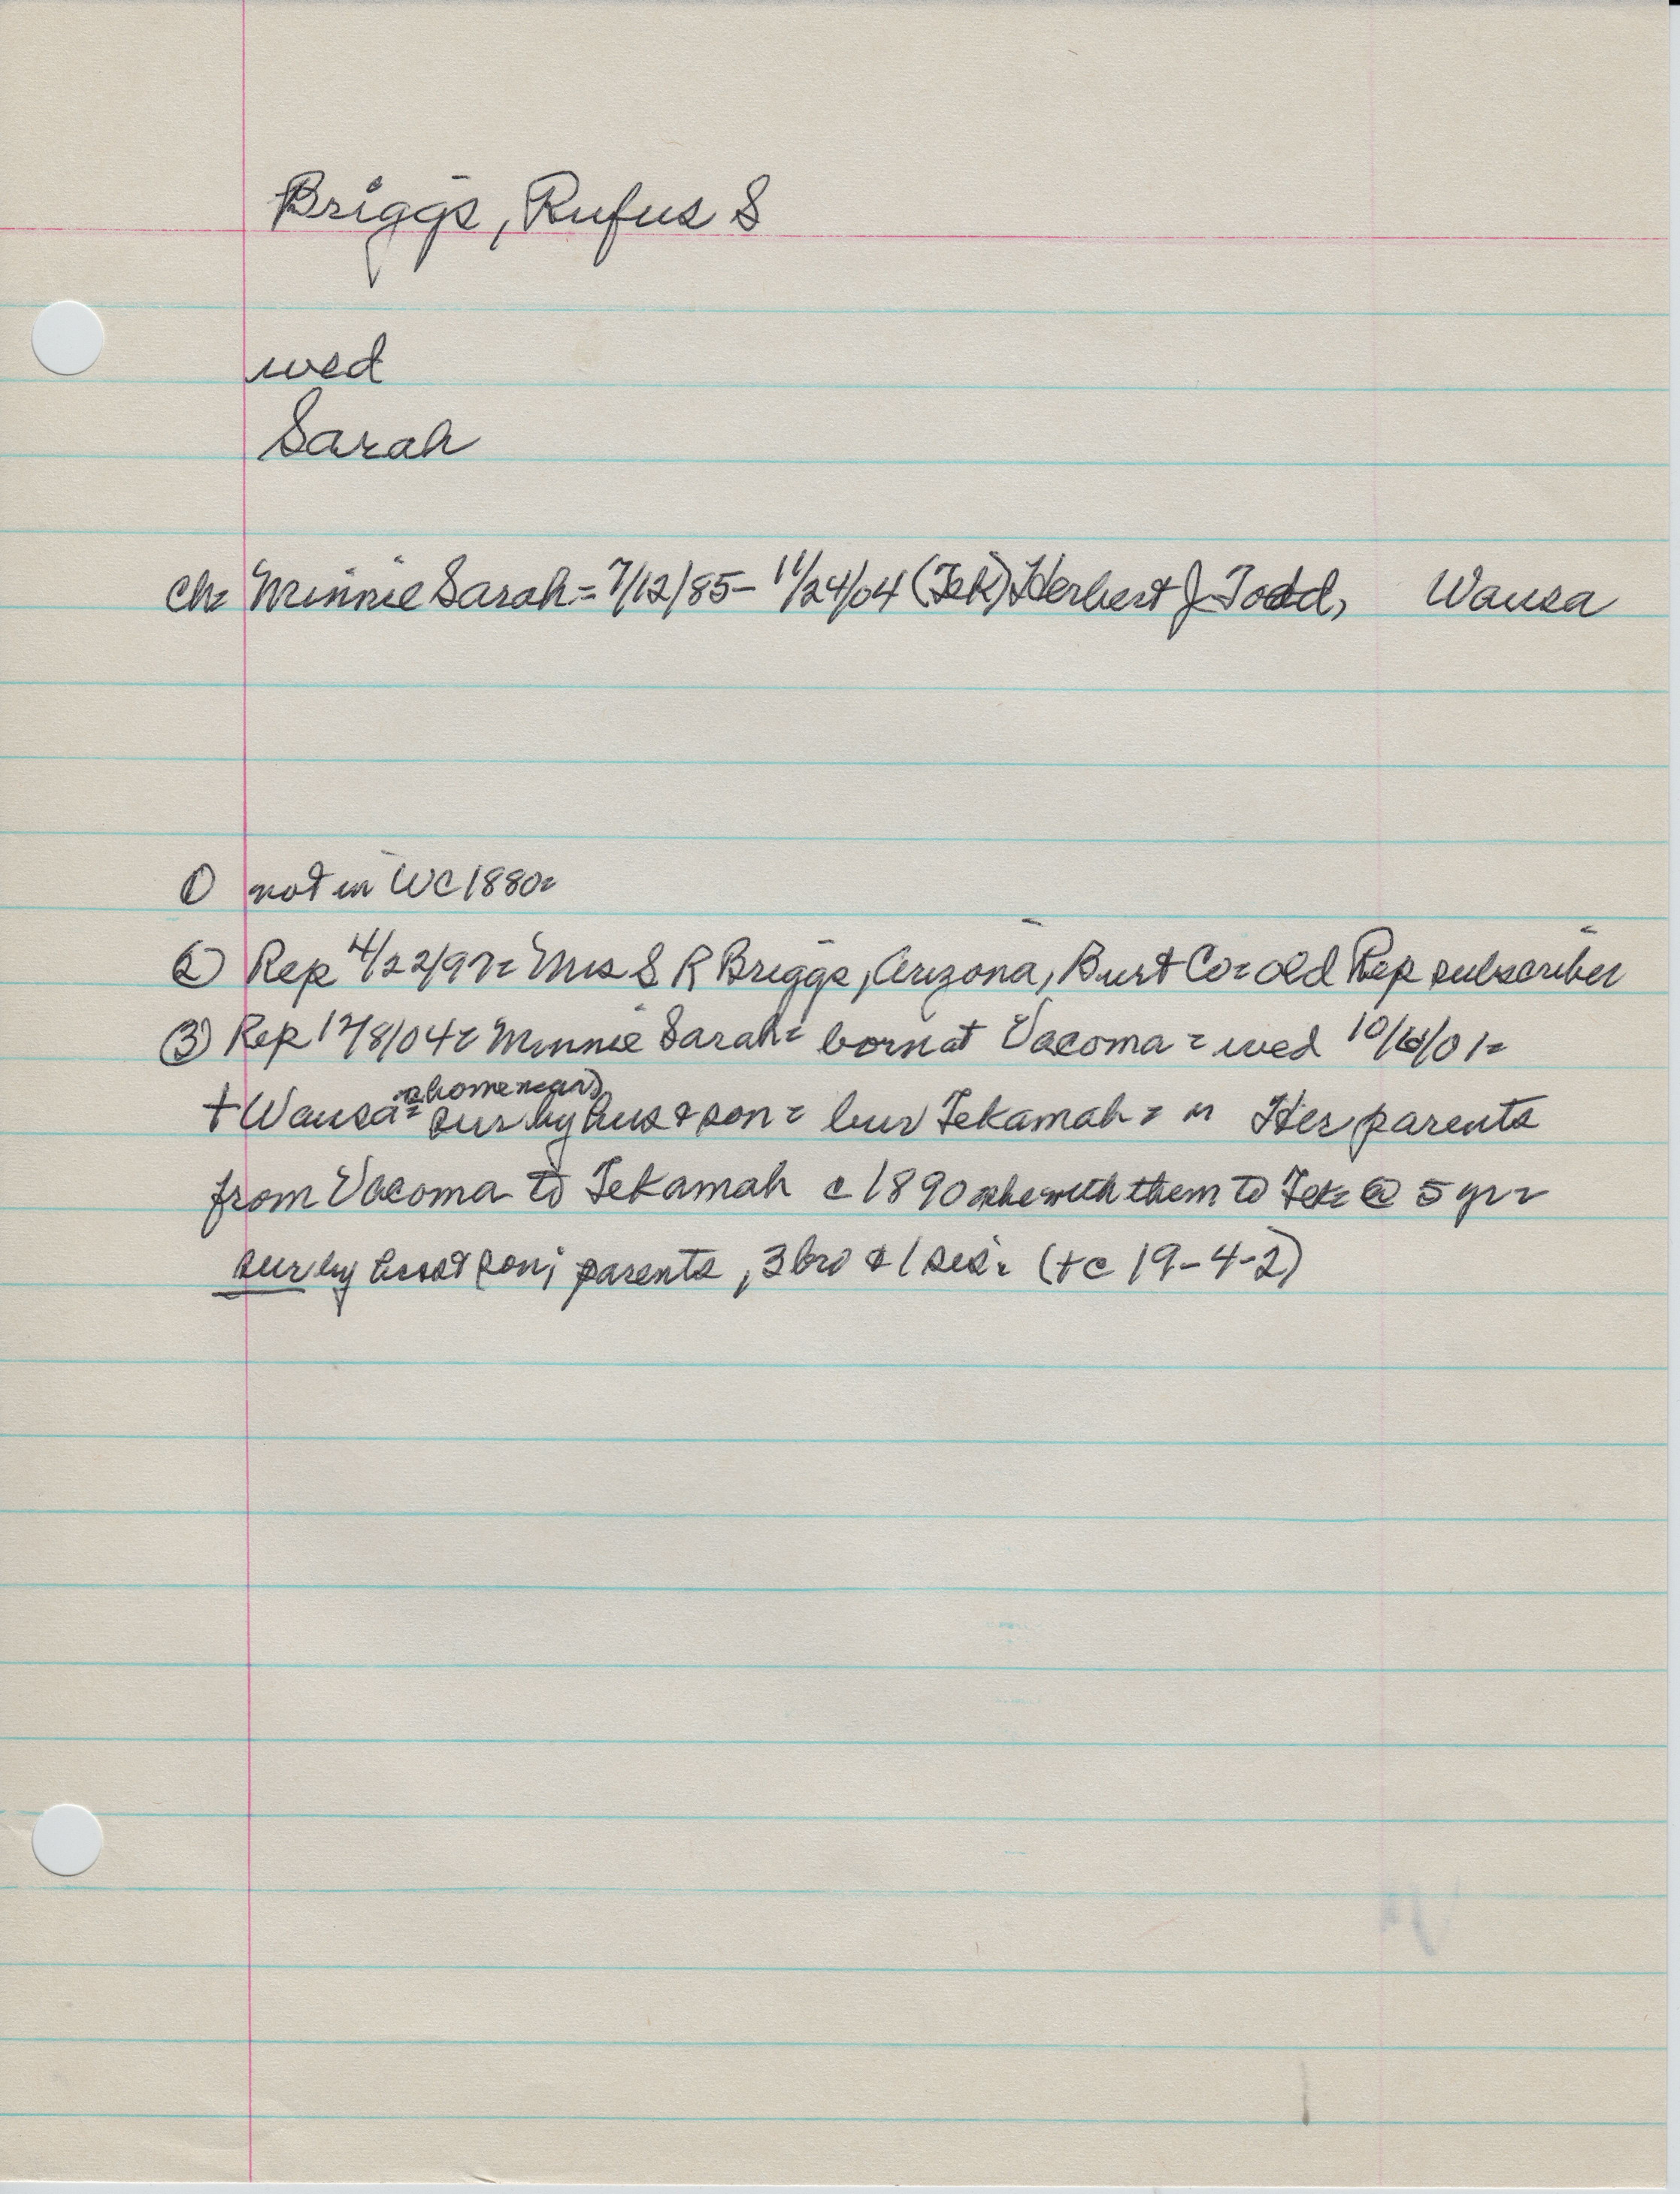 Briggs, Rufus S
wed
Sarah
ch= Minnie Sarah = 7/12/85 - 11/24/04 (Tek) Herbert J Todd, Wausa
① not in WC 1880=
② Rep 4/22/97= Mrs S R Briggs, Arizona, Burt Co= old Rep subscriber
③ Rep 12/8/04= Minnie Sarah= born at Vacoma = wed 10/ /01=
(home near)
+ Wausa= sur by hus & son = bur Tekamah = " Her parents
from Vacoma to Tekamah c 1890 she with them to Tek= @ 5 yr=
sur by hus & son; parents, 3 bro & 1 sis. (+c 19-4-2)